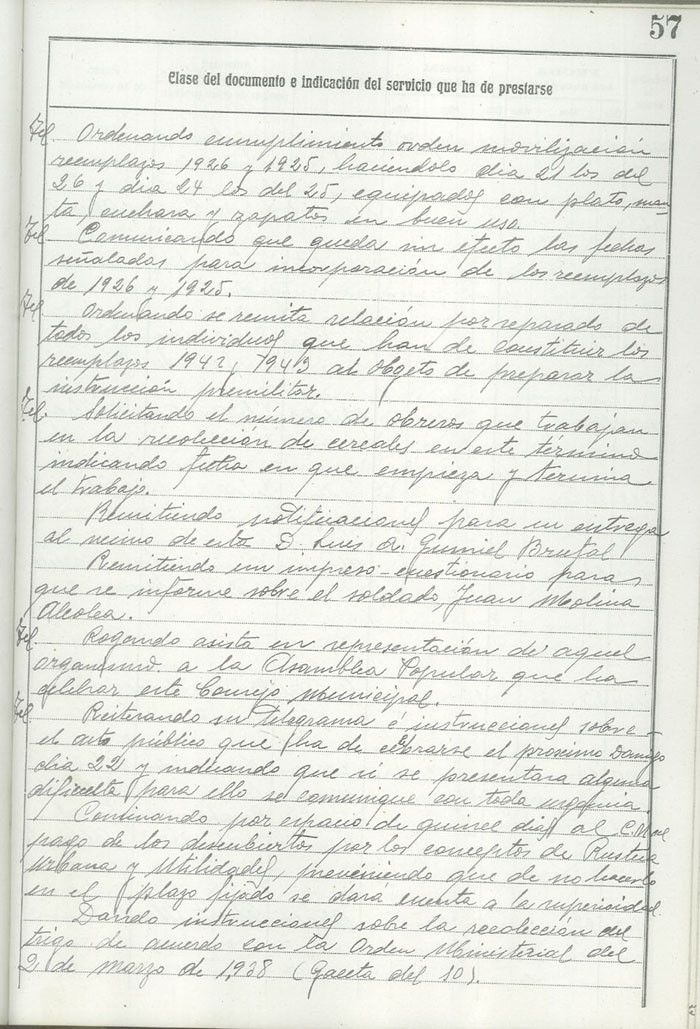 57
Clase del documento e indicación del servicio que ha de prestarse
Tel. Ordenando cumplimiento orden movilización
reemplazos 1926 y 1925, haciéndolo dia 21 los del
26 y dia 24 los del 25, equipados con plato, man-
ta cuchara y zapatos en buen uso.
Tel Comunicando que queda sin efecto las fechas
señaladas para incorporación de los reemplazos
de 1926 y 1925.
Tel Ordenando se remita relación por separado de
todos los individuos que han de constituir los
reemplazos 1942, 1943 al objeto de preparar la
instrucción premilitar.
Tel. Solicitando el número de obreros que trabajan
en la recolección de cereales en este término
indicando fecha en que empieza y termina
el trabajo.
Remitiendo notificaciones para su entrega
al vecino de esta D. Luis A. Gumiel Brufal
Remitiendo un impreso-cuestionario para
que se informe sobre el soldado, Juan Molina
Alcolea.
Tel Rogando asista en representación de aquel
organismo a la Asamblea Popular que ha
celebrar este Consejo Municipal.
Tel. Reiterando su telegrama é instrucciones sobre
el acto público que ha de celebrarse el proximo Domingo
dia 22 y indicando que si se presentara alguna
dificulta para ello se comunique con toda urgencia
Continando por espacio de quince dias al C.M. el
pago de los descubiertos por los conceptos de Rustica
Urbana y Utilidades, previniendo que de no hacerlo
en el plazo fijado se dará cuenta a la superioridad.
Dando instrucciones sobre la recolección del
trigo de acuerdo con la Orden Ministerial del
2 de marzo de 1,938 (Gaceta del 10).